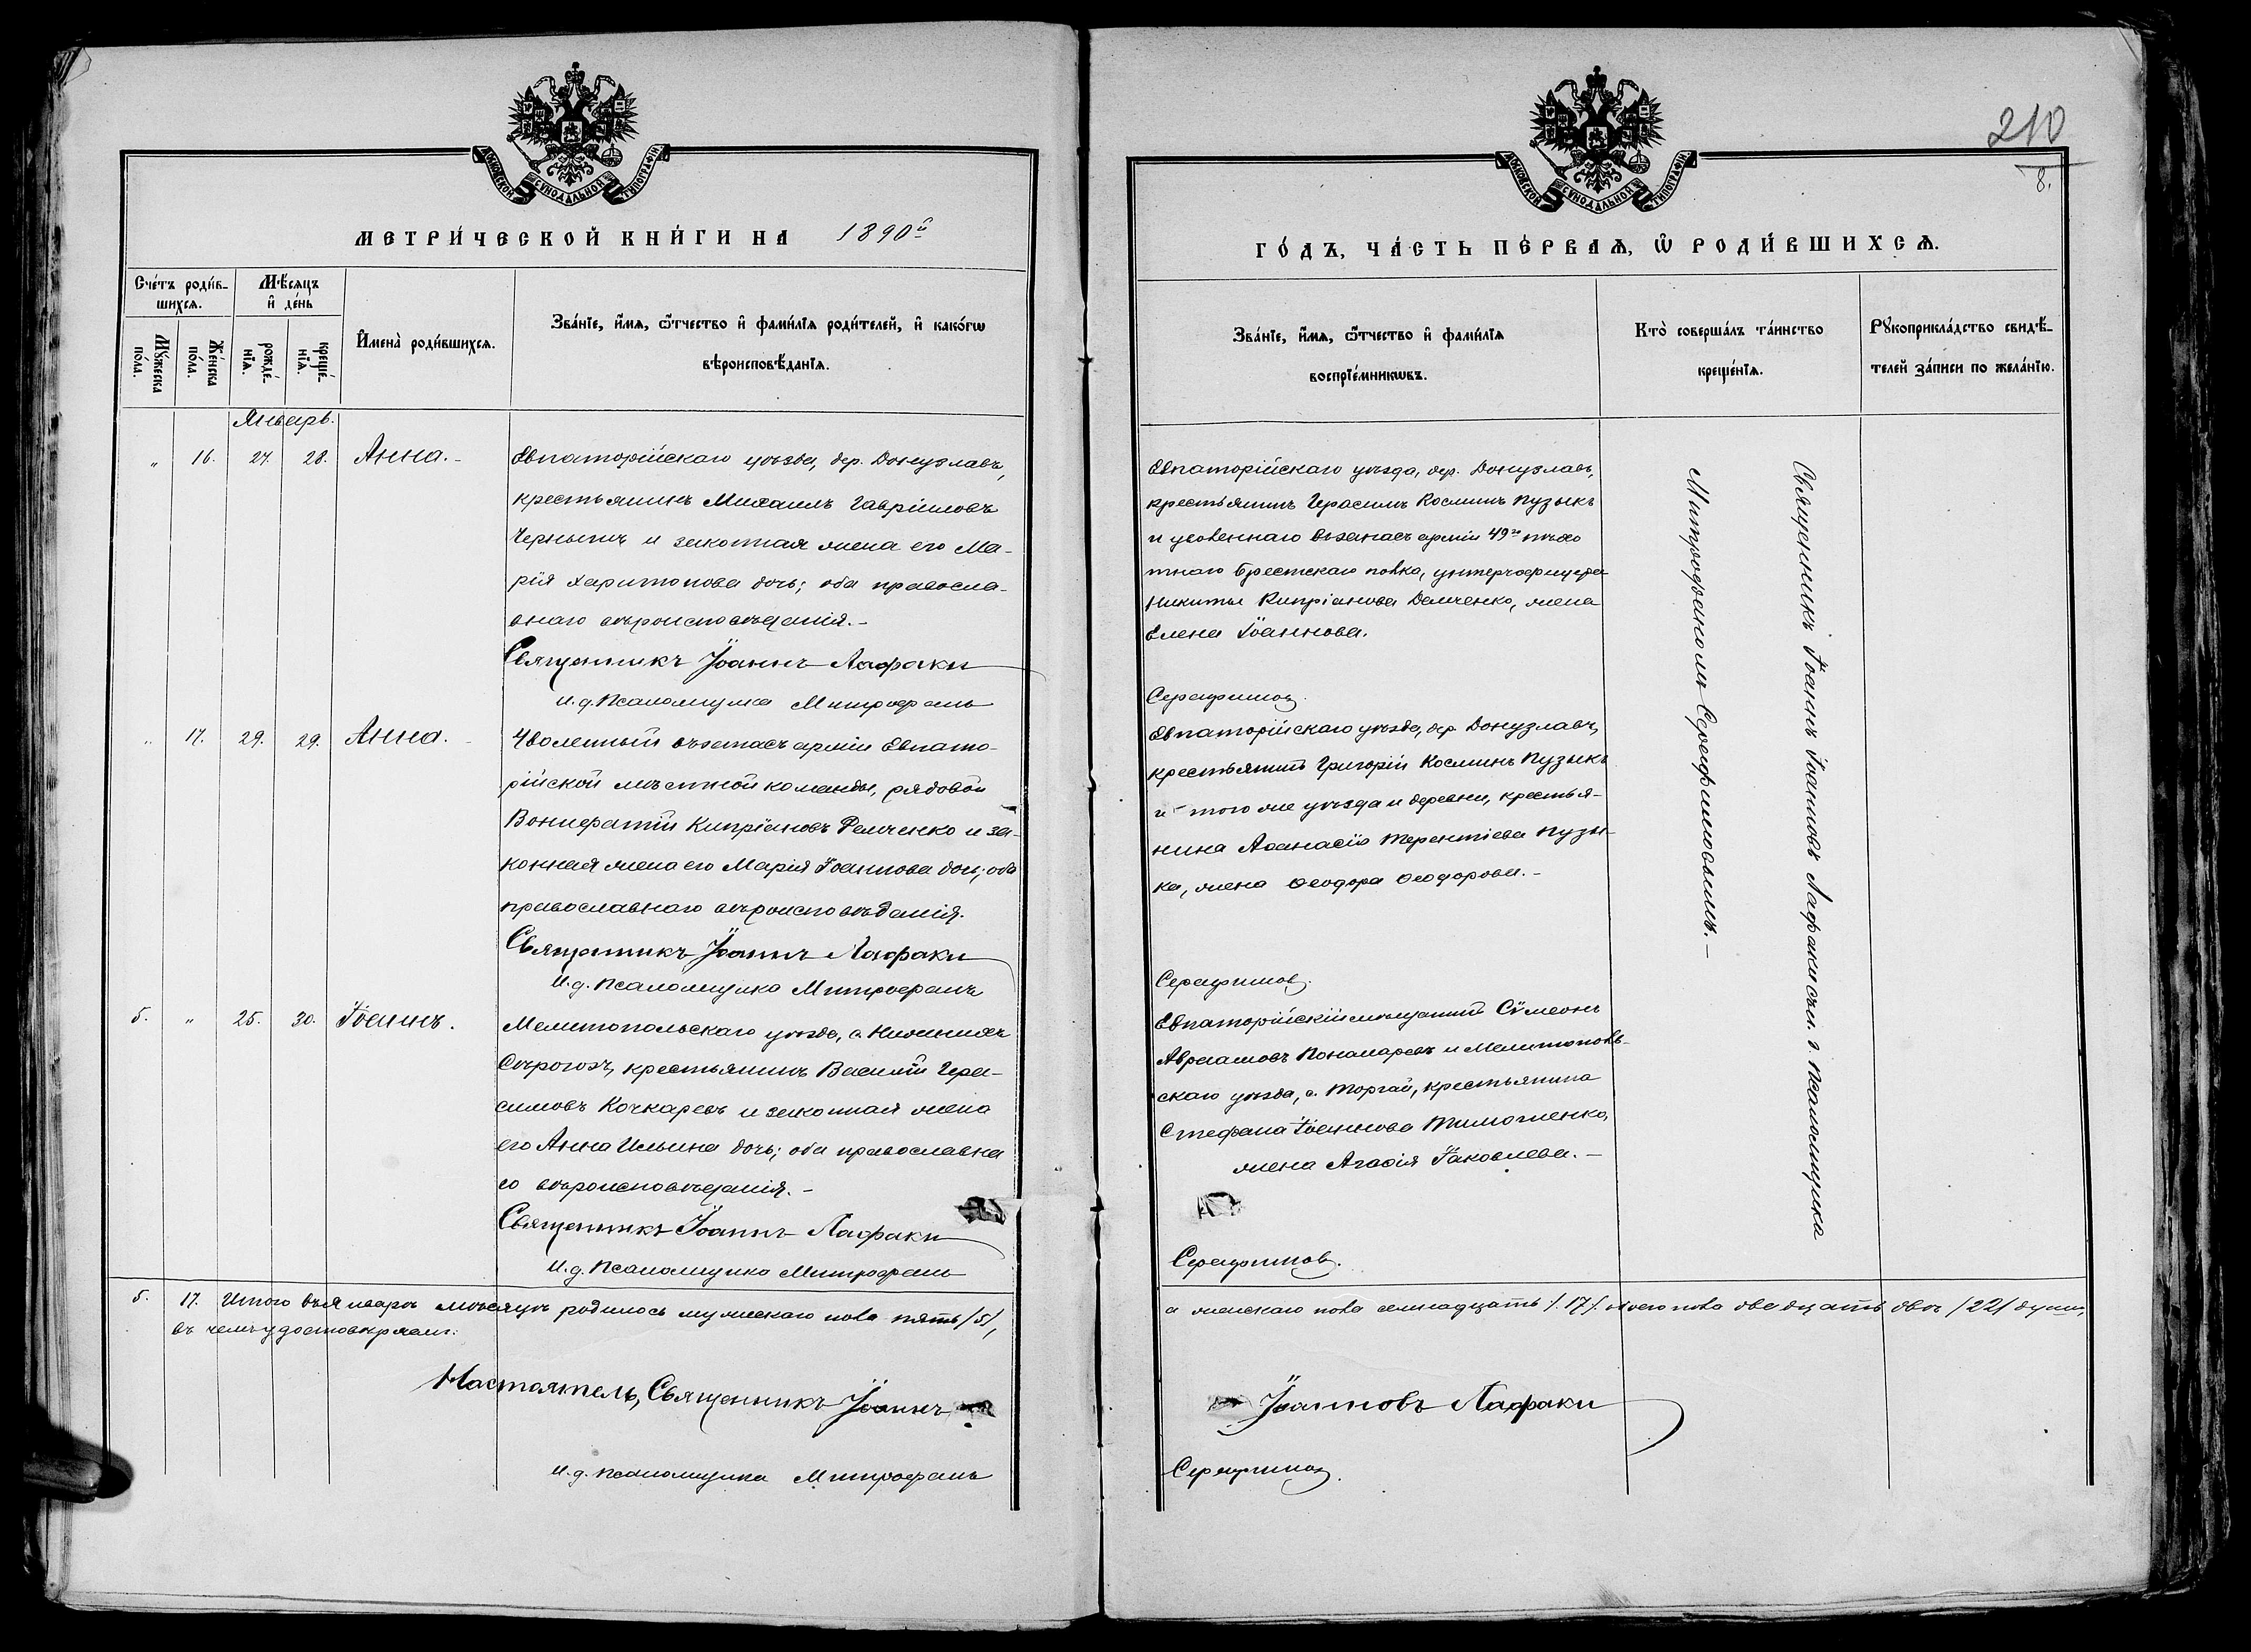 МОСКОВСКОЙ СѴНОДАЛЬНОЙ ТИПОГРАФІИ
МЕТРИ́ЧЕСКОЙ КНИ́ГИ НА 1890й
Сче́тъ роди́в-
шихсѧ.
Мѣ́сяцъ
и҆ де́нь
Мꙋ́жеска
по́ла.
Же́нска
по́ла.
рожде́-
нїѧ.
креще́-
нїѧ.
И҆мена̀ роди́вшихсѧ.
Зва́нїе, и҆́мѧ, ѻ҆́тчество и҆ фами́лїѧ роди́телей, и҆ како́гѡ
вѣроисповѣ́данїѧ.
Январь.
„ 16. 27. 28. Анна.-
Евпаторійскаго уѣзда, дер. Донузлавъ,
крестьянинъ Михаилъ Гавріиловъ
Чернышъ и законная жена его Ма-
рія Харитонова дочь; оба правосла-
внаго вѣроисповѣданія.-
Священникъ Іоаннъ Лафаки
И.д. Псаломщика Митрофанъ
„ 17. 29. 29. Анна. -
Уволенный въ запасъ арміи Евпато-
рійской мѣстной команды, рядовой
Вонифатій Кипріановъ Демченко и за-
конная жена его Марія Іоаннова дочь; оба
православнаго вѣроисповѣданія.
Священникъ Іоаннъ Лафаки
И.д. Псаломщика Митрофанъ
5. „ 25. 30. Іоаннъ.
Мелитопольскаго уѣзда, с. Нижнихъ
Сѣрогозъ, крестьянинъ Василій Гера-
симовъ Кочкаревъ и законная жена
его Анна Ильина дочь; оба православна
го вѣроисповѣданія.-
Священникъ Іоаннъ Лафаки
И.д. Псаломщика Митрофанъ
5. 17. Итого въ январѣ мѣсяцѣ родилось мужескаго пола пять /5/,
въ чемъ удостовѣряемъ:
Настоятель, Священникъ Іоаннъ
И.д. Псаломщика Митрофанъ
210
8.
МОСКОВСКОЙ СѴНОДАЛЬНОЙ ТИПОГРАФІИ
ГО́ДЪ, ЧА́СТЬ ПЕ́РВАѦ, Ѡ҆ РОДИ́ВШИХСѦ.
Зва́нїе, и҆́мѧ, ѻ҆́тчество и҆ фами́лїѧ
воспрїе́мникѡвъ.
Кто̀ соверша́лъ та́инство
креще́нїѧ.
Рꙋкоприкла́дство свидѣ́-
телей за́писи по жела́нїю.
Евпаторійскаго уѣзда, дер. Донузлавъ,
крестьянинъ Герасимъ Косминъ Пузыкъ
и уволеннаго въ запасъ арміи 49го пѣхо
тнаго Брестскаго полка, унтеръ офицера
Никиты Кипріанова Демченко, жена
Елена Іоаннова.
Серафимов.
Евпаторійскаго уѣзда, дер. Донузлавъ,
крестьянинъ Григорій Косминъ Пузыкъ
и того же уѣзда и деревни, крестья-
нина Аѳанасія Терентіева Пузы-
ка, жена Ѳеодора Ѳеодорова.-
Серафимов.
Евпаторійскій мѣщанинъ Сѷмеонъ
Авраамовъ Пономаревъ и Мелитополь-
скаго уѣзда, с. Торгай, крестьянина
Стефана Іоаннова Тимошенко,
жена Агаѳія Іаковлева.-
Серафимов.
Священникъ Іоаннъ Іоанновъ Лафаки съ и. д. Псаломщика
Митрофаномъ Серафимовымъ.-
а женскаго пола семнадцать /17/. Обоего пола двадцать двѣ /22/ души,
Іоанновъ Лафаки
Серафимов.